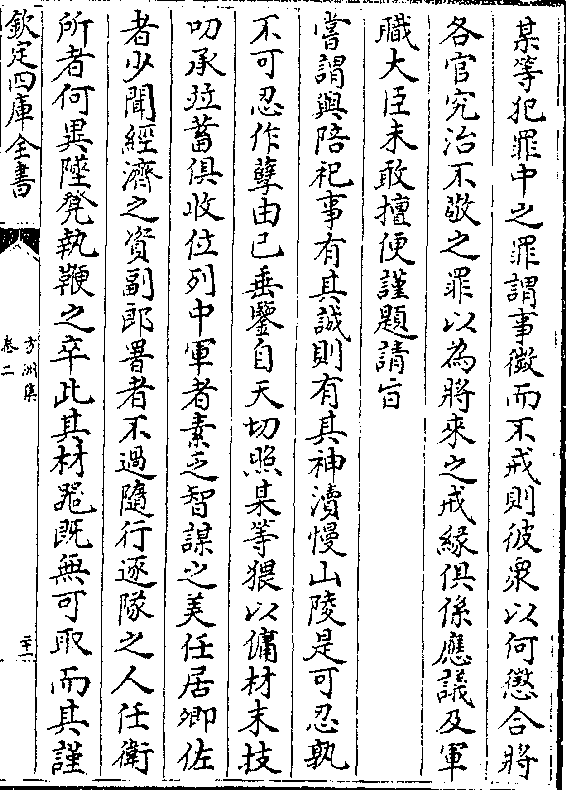 某等犯罪中之罪謂事㣲而不戒則彼衆以何懲合將
各官究治不敬之罪以為將來之戒縁俱係應議及軍
職大臣未敢擅便謹題請旨
嘗謂與陪祀事有其誠則有其神瀆慢山陵是可忍孰
不可忍作孽由已垂鑒自天切照某等猥以傭材末技
叨承㧞蓄俱收位列中軍者素乏智謀之美任居卿佐
者少聞經濟之資副郎署者不過隨行逐隊之人任衛
所者何異墜凳執鞭之卒此其材噐既無可取而其謹
欽定四庫全書
方洲集
卷二